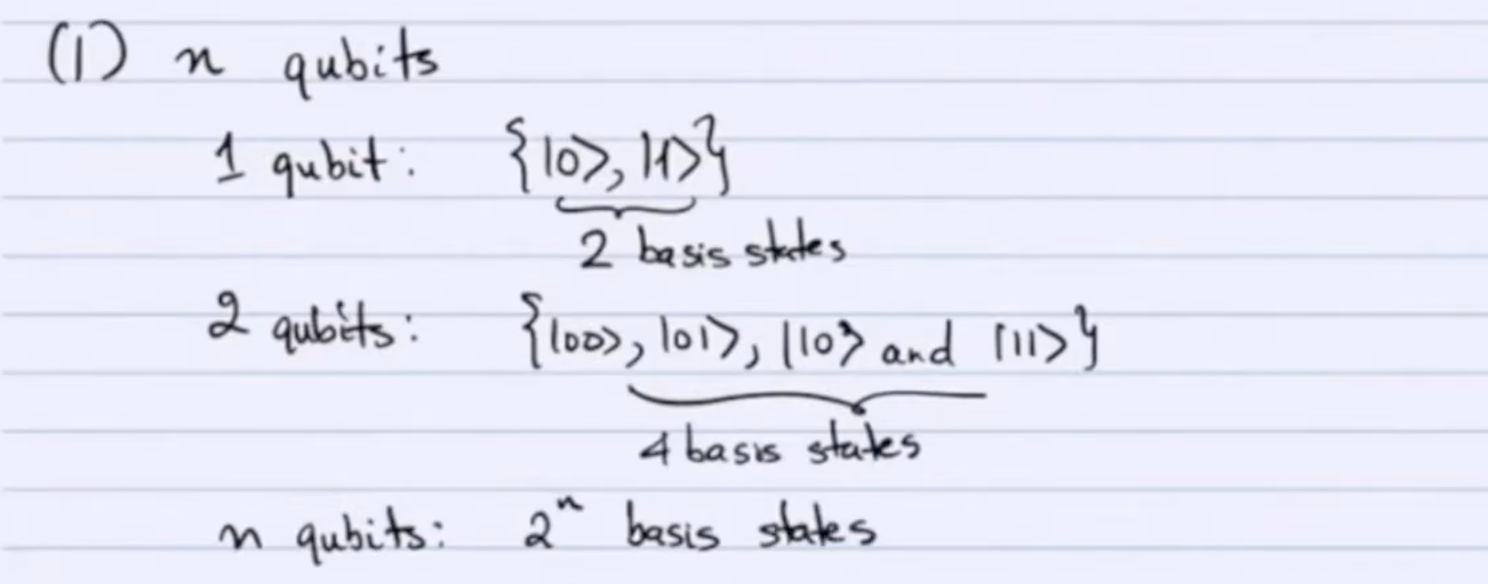 (1) n qubits
1 qubit: {|0>, |1>}
2 basis states
2 qubits: {|00>, |01>, |10> and |11>}
4 basis states
n qubits: 2ⁿ basis states